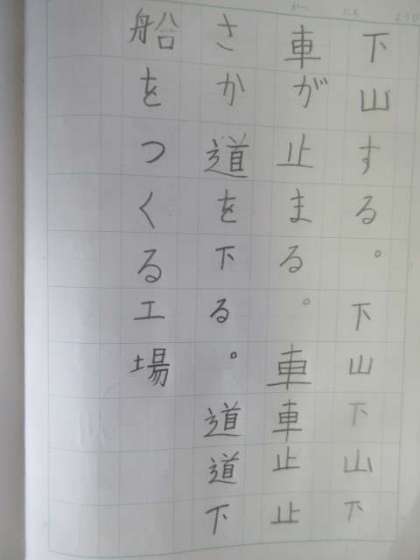 下山する。下山下山下
車が止まる。車車止止
さか道を下る。道道下
船をつくる工場